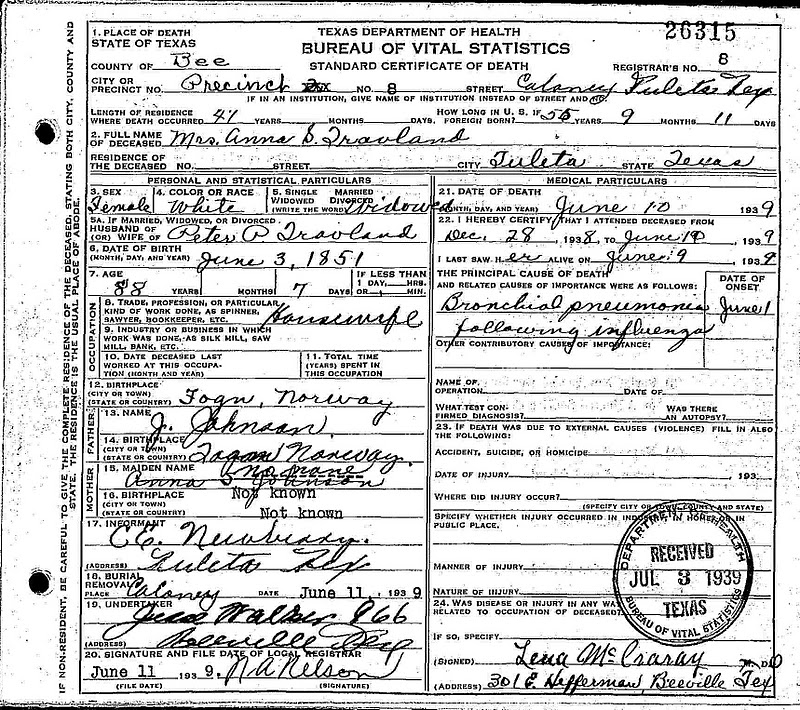 TEXAS DEPARTMENT OF HEALTH
BUREAU OF VITAL STATISTICS
STANDARD CERTIFICATE OF DEATH
26315
1. PLACE OF DEATH
STATE OF TEXAS
COUNTY OF Bee
REGISTRAR'S NO. 8
CITY OR PRECINCT NO. Precinct NO. 8 STREET Coloney Tuleta Tex
IF IN AN INSTITUTION, GIVE NAME OF INSTITUTION INSTEAD OF STREET AND NO.
LENGTH OF RESIDENCE WHERE DEATH OCCURRED 41 YEARS MONTHS DAYS. HOW LONG IN U. S. IF FOREIGN BORN? 55 YEARS 9 MONTHS 11 DAYS
2. FULL NAME OF DECEASED Mrs. Anna S. Travland
RESIDENCE OF THE DECEASED NO. STREET CITY Tuleta STATE Texas
PERSONAL AND STATISTICAL PARTICULARS
3. SEX Female
4. COLOR OR RACE White
5. SINGLE MARRIED WIDOWED DIVORCED (WRITE THE WORD) Widowed
5A. IF MARRIED, WIDOWED, OR DIVORCED HUSBAND OF (OR) WIFE OF Peter P Travland
6. DATE OF BIRTH (MONTH, DAY, AND YEAR) June 3, 1851
7. AGE 88 YEARS MONTHS 7 DAYS IF LESS THAN 1 DAY, HRS. OR MIN.
OCCUPATION
8. TRADE, PROFESSION, OR PARTICULAR KIND OF WORK DONE, AS SPINNER, SAWYER, BOOKKEEPER, ETC. Housewife
9. INDUSTRY OR BUSINESS IN WHICH WORK WAS DONE, AS SILK MILL, SAW MILL, BANK, ETC.
10. DATE DECEASED LAST WORKED AT THIS OCCUPATION (MONTH AND YEAR)
11. TOTAL TIME (YEARS) SPENT IN THIS OCCUPATION
12. BIRTHPLACE (CITY OR TOWN) (STATE OR COUNTRY) Fogn, Norway
FATHER
13. NAME J. Johnson
14. BIRTHPLACE (CITY OR TOWN) (STATE OR COUNTRY) Norway.
MOTHER
15. MAIDEN NAME Anna S Johnson
16. BIRTHPLACE (CITY OR TOWN) (STATE OR COUNTRY) Not known
Not known
17. INFORMANT C C. Newberry.
(ADDRESS) Tuleta Tex
18. BURIAL REMOVAL
PLACE Coloney DATE June 11, 1939
19. UNDERTAKER Walker 966
(ADDRESS) Beeville Tex
20. SIGNATURE AND FILE DATE OF LOCAL REGISTRAR
June 11 1939. N. A. Nelson
(FILE DATE) (SIGNATURE)
MEDICAL PARTICULARS
21. DATE OF DEATH (MONTH, DAY, AND YEAR) June 10 1939
22. I HEREBY CERTIFY THAT I ATTENDED DECEASED FROM
Dec. 28 1938, TO June 10, 1939
I LAST SAW H er ALIVE ON June 9 1939
THE PRINCIPAL CAUSE OF DEATH AND RELATED CAUSES OF IMPORTANCE WERE AS FOLLOWS:
DATE OF ONSET
Bronchial pneumonia June 1
following influenza
OTHER CONTRIBUTORY CAUSES OF IMPORTANCE:
NAME OF OPERATION DATE OF
WHAT TEST CONFIRMED DIAGNOSIS? WAS THERE AN AUTOPSY?
23. IF DEATH WAS DUE TO EXTERNAL CAUSES (VIOLENCE) FILL IN ALSO THE FOLLOWING:
ACCIDENT, SUICIDE, OR HOMICIDE
DATE OF INJURY 193
WHERE DID INJURY OCCUR?
(SPECIFY CITY OR TOWN, COUNTY AND STATE)
SPECIFY WHETHER INJURY OCCURRED IN INDUSTRY, IN HOME, OR IN PUBLIC PLACE.
MANNER OF INJURY
NATURE OF INJURY
24. WAS DISEASE OR INJURY IN ANY WAY RELATED TO OCCUPATION OF DECEASED?
IF SO, SPECIFY
(SIGNED) Lena McCraray M. D.
(ADDRESS) 301 E. Hefferman, Beeville Tex
DEPARTMENT OF HEALTH
RECEIVED
JUL 3 1939
TEXAS
BUREAU OF VITAL STATISTICS
IF NON-RESIDENT, BE CAREFUL TO GIVE THE COMPLETE RESIDENCE OF THE DECEASED, STATING BOTH CITY, COUNTY AND STATE. THE RESIDENCE IS THE USUAL PLACE OF ABODE.